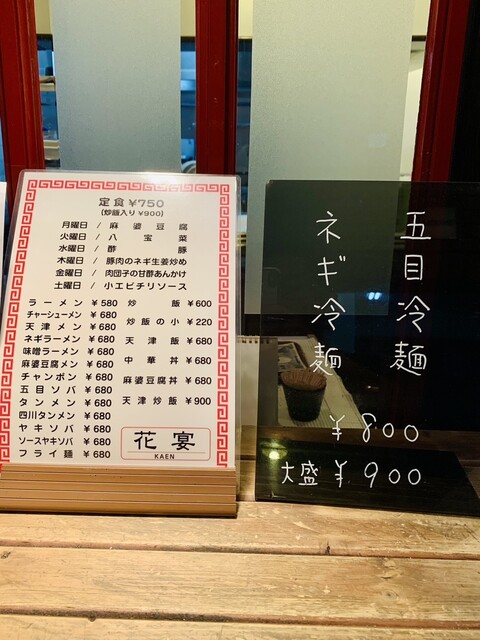 定食¥750
(炒飯入り¥900)
月曜日 / 麻婆豆腐
火曜日 / 八宝菜
水曜日 / 酢豚
木曜日 / 豚肉のネギ生姜炒め
金曜日 / 肉団子の甘酢あんかけ
土曜日 / 小エビチリソース
ラーメン ¥580
チャーシューメン ¥680
天津メン ¥680
ネギラーメン ¥680
味噌ラーメン ¥680
麻婆豆腐メン ¥680
チャンポン ¥680
五目ソバ ¥680
タンメン ¥680
四川タンメン ¥680
ヤキソバ ¥680
ソースヤキソバ ¥680
フライ麺 ¥680
炒飯 ¥600
炒飯の小 ¥220
天津飯 ¥680
中華丼 ¥680
麻婆豆腐丼 ¥680
天津炒飯 ¥900
花宴
KAEN
五目冷麺
ネギ冷麺
¥800
大盛¥900